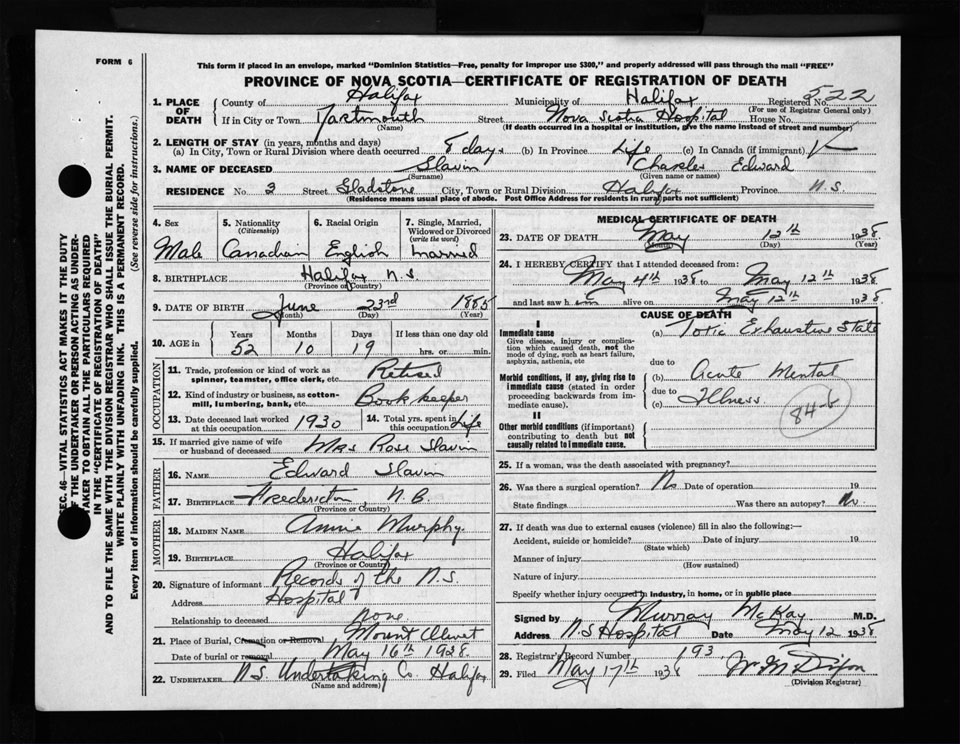 FORM 6
This form if placed in an envelope, marked "Dominion Statistics—Free, penalty for improper use $300," and properly addressed will pass through the mail "FREE"
PROVINCE OF NOVA SCOTIA—CERTIFICATE OF REGISTRATION OF DEATH
1. PLACE OF DEATH County of Halifax Municipality of Halifax Registered No. 522
(For use of Registrar General only)
If in City or Town Dartmouth Street Nova Scotia Hospital House No.
(Name) (If death occurred in a hospital or institution, give the name instead of street and number)
2. LENGTH OF STAY (in years, months and days)
(a) In City, Town or Rural Division where death occurred 8 days (b) In Province Life (c) In Canada (if immigrant)
3. NAME OF DECEASED Slavin Charles Edward
(Surname) (Given name or names)
RESIDENCE No. 3 Street Gladstone City, Town or Rural Division Halifax Province N.S.
(Residence means usual place of abode. Post Office Address for residents in rural parts not sufficient)
4. Sex 5. Nationality (Citizenship) 6. Racial Origin 7. Single, Married, Widowed or Divorced (write the word)
Male Canadian English Married
8. BIRTHPLACE Halifax N.S.
(Province or Country)
9. DATE OF BIRTH June 23rd 1885
(Month) (Day) (Year)
10. AGE in Years Months Days If less than one day old
52 10 19 hrs. or min.
OCCUPATION
11. Trade, profession or kind of work as spinner, teamster, office clerk, etc. Retired
12. Kind of industry or business, as cotton-mill, lumbering, bank, etc. Book keeper
13. Date deceased last worked at this occupation 1930 14. Total yrs. spent in this occupation Life
15. If married give name of wife or husband of deceased Mrs Rose Slavin
FATHER
16. NAME Edward Slavin
17. BIRTHPLACE Fredericton, N.B.
(Province or Country)
MOTHER
18. MAIDEN NAME Annie Murphy.
19. BIRTHPLACE Halifax
(Province or Country)
20. Signature of informant Records of the N.S.
Address Hospital
Relationship to deceased none.
21. Place of Burial, Cremation or Removal Mount Olivet
Date of burial or removal May 16th 1928.
22. UNDERTAKER N.S. Undertaking Co. Halifax
(Name and address)
MEDICAL CERTIFICATE OF DEATH
23. DATE OF DEATH May 12th 1938
(Month) (Day) (Year)
24. I HEREBY CERTIFY that I attended deceased from:
May 4th 1938 to May 12th 1938
and last saw h alive on May 12th 1938
CAUSE OF DEATH
I
Immediate cause (a) Toxic Exhaustive State
Give disease, injury or complication which caused death, not the mode of dying, such as heart failure, asphyxia, asthenia, etc
due to
Morbid conditions, if any, giving rise to immediate cause (stated in order proceeding backwards from immediate cause). (b) Acute Mental
due to
(c) Illness
84-b
II
Other morbid conditions (if important) contributing to death but not causally related to immediate cause.
25. If a woman, was the death associated with pregnancy?
26. Was there a surgical operation? No Date of operation 19
State findings Was there an autopsy? No
27. If death was due to external causes (violence) fill in also the following:—
Accident, suicide or homicide? Date of injury 19
(State which)
Manner of injury
(How sustained)
Nature of injury
Specify whether injury occurred in industry, in home, or in public place
Signed by Murray McKay M.D.
Address N.S Hospital Date May 12 1938
28. Registrar's Record Number 193.
29. Filed May 17th 1938
(Division Registrar)
SEC. 46—VITAL STATISTICS ACT MAKES IT THE DUTY
OF THE UNDERTAKER OR PERSON ACTING AS UNDER-
TAKER TO OBTAIN ALL THE PARTICULARS REQUIRED
IN THE "CERTIFICATE OF REGISTRATION OF DEATH"
AND TO FILE THE SAME WITH THE DIVISION REGISTRAR WHO SHALL ISSUE THE BURIAL PERMIT.
WRITE PLAINLY WITH UNFADING INK. THIS IS A PERMANENT RECORD.
Every item of information should be carefully supplied. (See reverse side for instructions.)